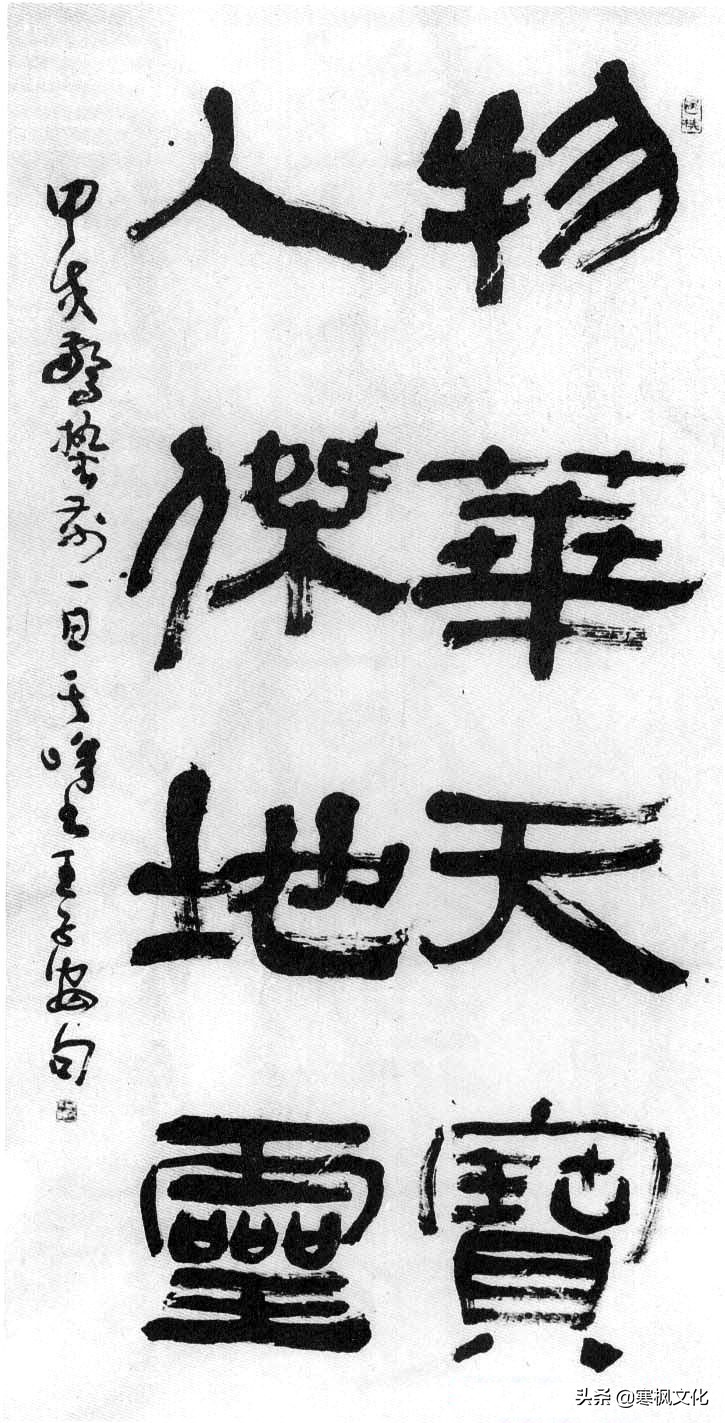 物華天寶
人傑地靈
甲戌驚蟄前一日書王子安句
头条 @寒枫文化